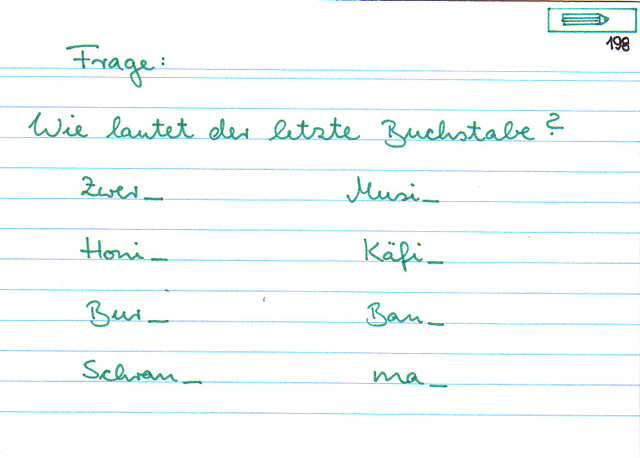 198
Frage:
Wie lautet der letzte Buchstabe?
Zwer_ Musi_
Honi_ Käfi_
Bur_ Ban_
Schran_ ma_